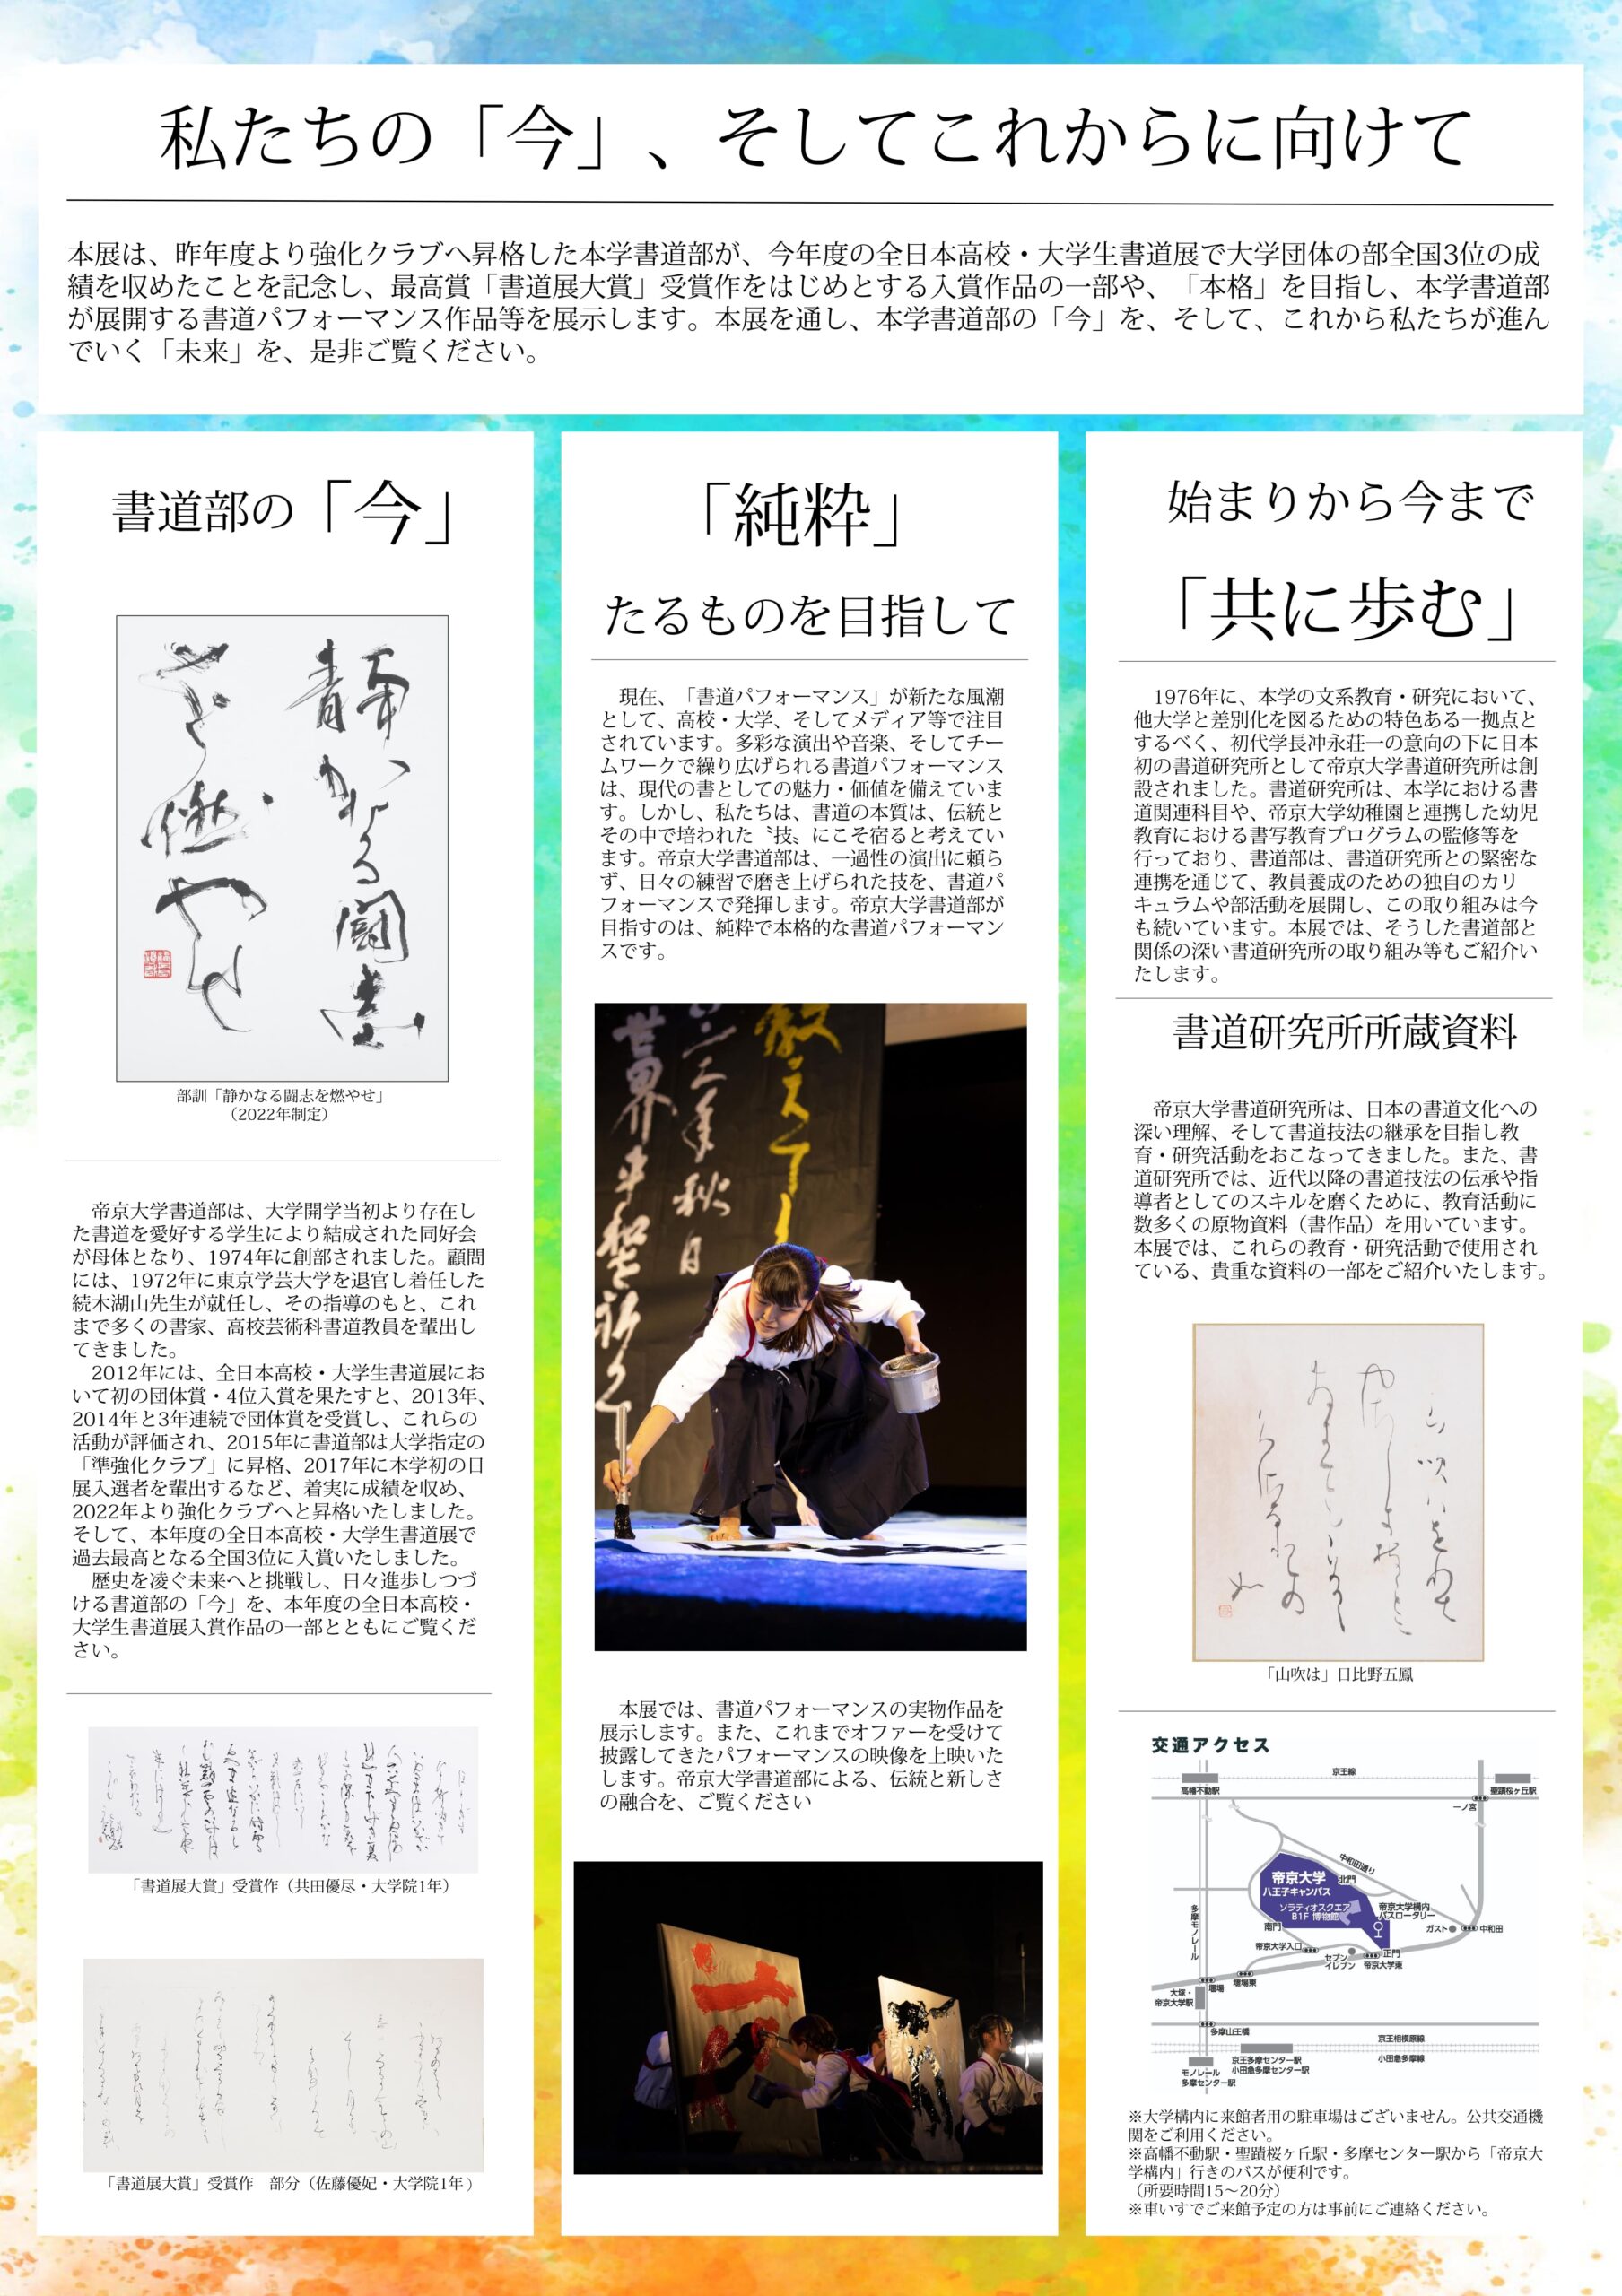 私たちの「今」、そしてこれからに向けて
本展は、昨年度より強化クラブへ昇格した本学書道部が、今年度の全日本高校・大学生書道展で大学団体の部全国3位の成
績を収めたことを記念し、最高賞「書道展大賞」受賞作をはじめとする入賞作品の一部や、「本格」を目指し、本学書道部
が展開する書道パフォーマンス作品等を展示します。本展を通し、本学書道部の「今」を、そして、これから私たちが進ん
でいく「未来」を、是非ご覧ください。
書道部の「今」
静かなる闘志
を燃やせ
部訓「静かなる闘志を燃やせ」
（2022年制定）
帝京大学書道部は、大学開学当初より存在し
た書道を愛好する学生により結成された同好会
が母体となり、1974年に創部されました。顧問
には、1972年に東京学芸大学を退官し着任した
続木湖山先生が就任し、その指導のもと、これ
まで多くの書家、高校芸術科書道教員を輩出し
てきました。
2012年には、全日本高校・大学生書道展にお
いて初の団体賞・4位入賞を果たすと、2013年、
2014年と3年連続で団体賞を受賞し、これらの
活動が評価され、2015年に書道部は大学指定の
「準強化クラブ」に昇格、2017年に本学初の日
展入選者を輩出するなど、着実に成績を収め、
2022年より強化クラブへと昇格いたしました。
そして、本年度の全日本高校・大学生書道展で
過去最高となる全国3位に入賞いたしました。
歴史を凌ぐ未来へと挑戦し、日々進歩しつづ
ける書道部の「今」を、本年度の全日本高校・
大学生書道展入賞作品の一部とともにご覧くだ
さい。
「書道展大賞」受賞作（共田優尽・大学院1年）
「書道展大賞」受賞作　部分（佐藤優妃・大学院1年）
「純粋」
たるものを目指して
現在、「書道パフォーマンス」が新たな風潮
として、高校・大学、そしてメディア等で注目
されています。多彩な演出や音楽、そしてチー
ムワークで繰り広げられる書道パフォーマンス
は、現代の書としての魅力・価値を備えていま
す。しかし、私たちは、書道の本質は、伝統と
その中で培われた〝技〟にこそ宿ると考えてい
ます。帝京大学書道部は、一過性の演出に頼ら
ず、日々の練習で磨き上げられた技を、書道パ
フォーマンスで発揮します。帝京大学書道部が
目指すのは、純粋で本格的な書道パフォーマン
スです。
世界平和を祈る
本展では、書道パフォーマンスの実物作品を
展示します。また、これまでオファーを受けて
披露してきたパフォーマンスの映像を上映いた
します。帝京大学書道部による、伝統と新しさ
の融合を、ご覧ください
始まりから今まで
「共に歩む」
1976年に、本学の文系教育・研究において、
他大学と差別化を図るための特色ある一拠点と
するべく、初代学長冲永荘一の意向の下に日本
初の書道研究所として帝京大学書道研究所は創
設されました。書道研究所は、本学における書
道関連科目や、帝京大学幼稚園と連携した幼児
教育における書写教育プログラムの監修等を
行っており、書道部は、書道研究所との緊密な
連携を通じて、教員養成のための独自のカリ
キュラムや部活動を展開し、この取り組みは今
も続いています。本展では、そうした書道部と
関係の深い書道研究所の取り組み等もご紹介い
たします。
書道研究所所蔵資料
帝京大学書道研究所は、日本の書道文化への
深い理解、そして書道技法の継承を目指し教
育・研究活動をおこなってきました。また、書
道研究所では、近代以降の書道技法の伝承や指
導者としてのスキルを磨くために、教育活動に
数多くの原物資料（書作品）を用いています。
本展では、これらの教育・研究活動で使用され
ている、貴重な資料の一部をご紹介いたします。
「山吹は」日比野五鳳
交通アクセス
京王線
高幡不動駅
聖蹟桜ヶ丘駅
一ノ宮
中和田通り
帝京大学
八王子キャンパス
北門
ソラティオスクエア
B1F 博物館
帝京大学構内
バスロータリー
多摩モノレール
南門
ガスト
中和田
帝京大学入口
セブン
イレブン
正門
帝京大学東
堰場
堰場東
大塚・
帝京大学駅
多摩山王橋
京王相模原線
京王多摩センター駅
小田急多摩センター駅
小田急多摩線
モノレール
多摩センター駅
※大学構内に来館者用の駐車場はございません。公共交通機
関をご利用ください。
※高幡不動駅・聖蹟桜ヶ丘駅・多摩センター駅から「帝京大
学構内」行きのバスが便利です。
（所要時間15～20分）
※車いすでご来館予定の方は事前にご連絡ください。